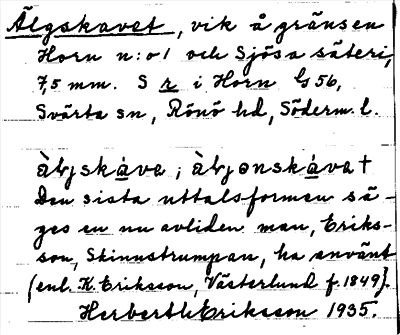 Älgskavet, vik å gränsen
Horn n:o 1 och Sjösa säteri,
7,5 mm. S r i Horn G 56,
Svärta sn, Rönö hd, Söderm. l.
àljskàva; àljənskàvat
Den sista uttalsformen sä-
ges en nu avliden man, Eriks-
son, Skinnstrumpan, ha använt
(enl. K. Eriksson, Västerlund f. 1849).
Herberth Eriksson 1935.